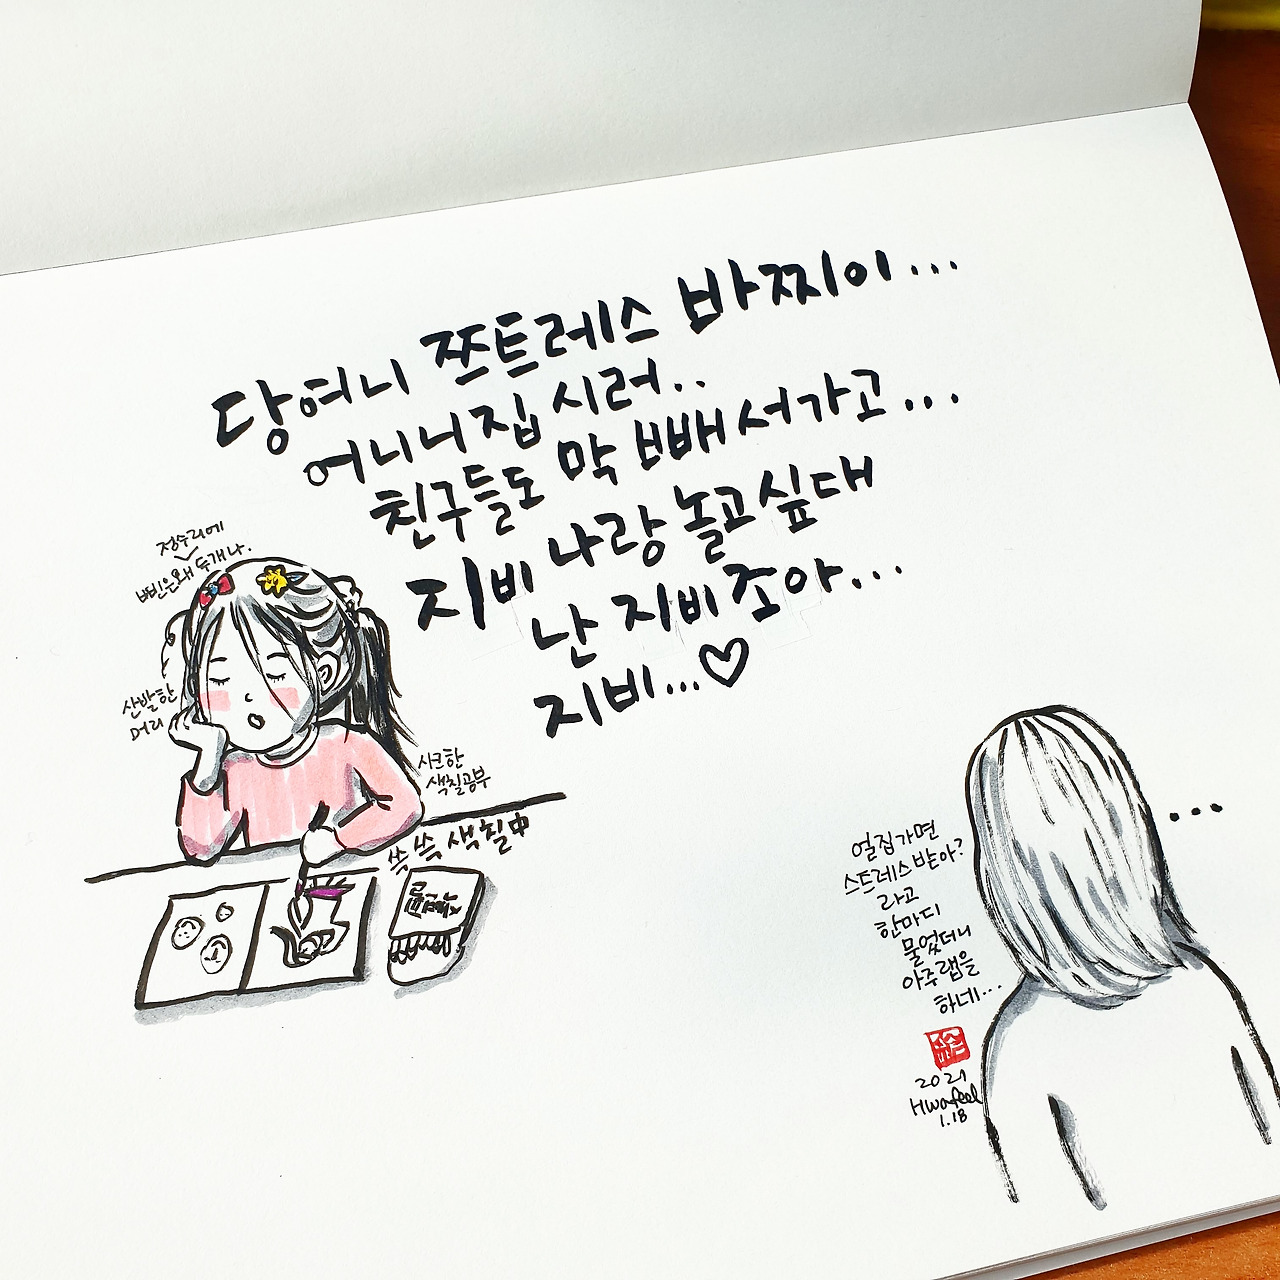 당여니 쯔트레스 바찌이...
어니니집 시러..
친구들도 막 빼서가고...
지비 나랑 놀고싶대
난 지비조아...
지비...♡
정수리에
삐빈은왜 두개나.
산발한
머리
시크한
색칠공부
쓱쓱 색칠中
얼집가면
스트레스받아?
라고
한마디
물었더니
아주랩을
하네...
2021
Hwafeel
1.18